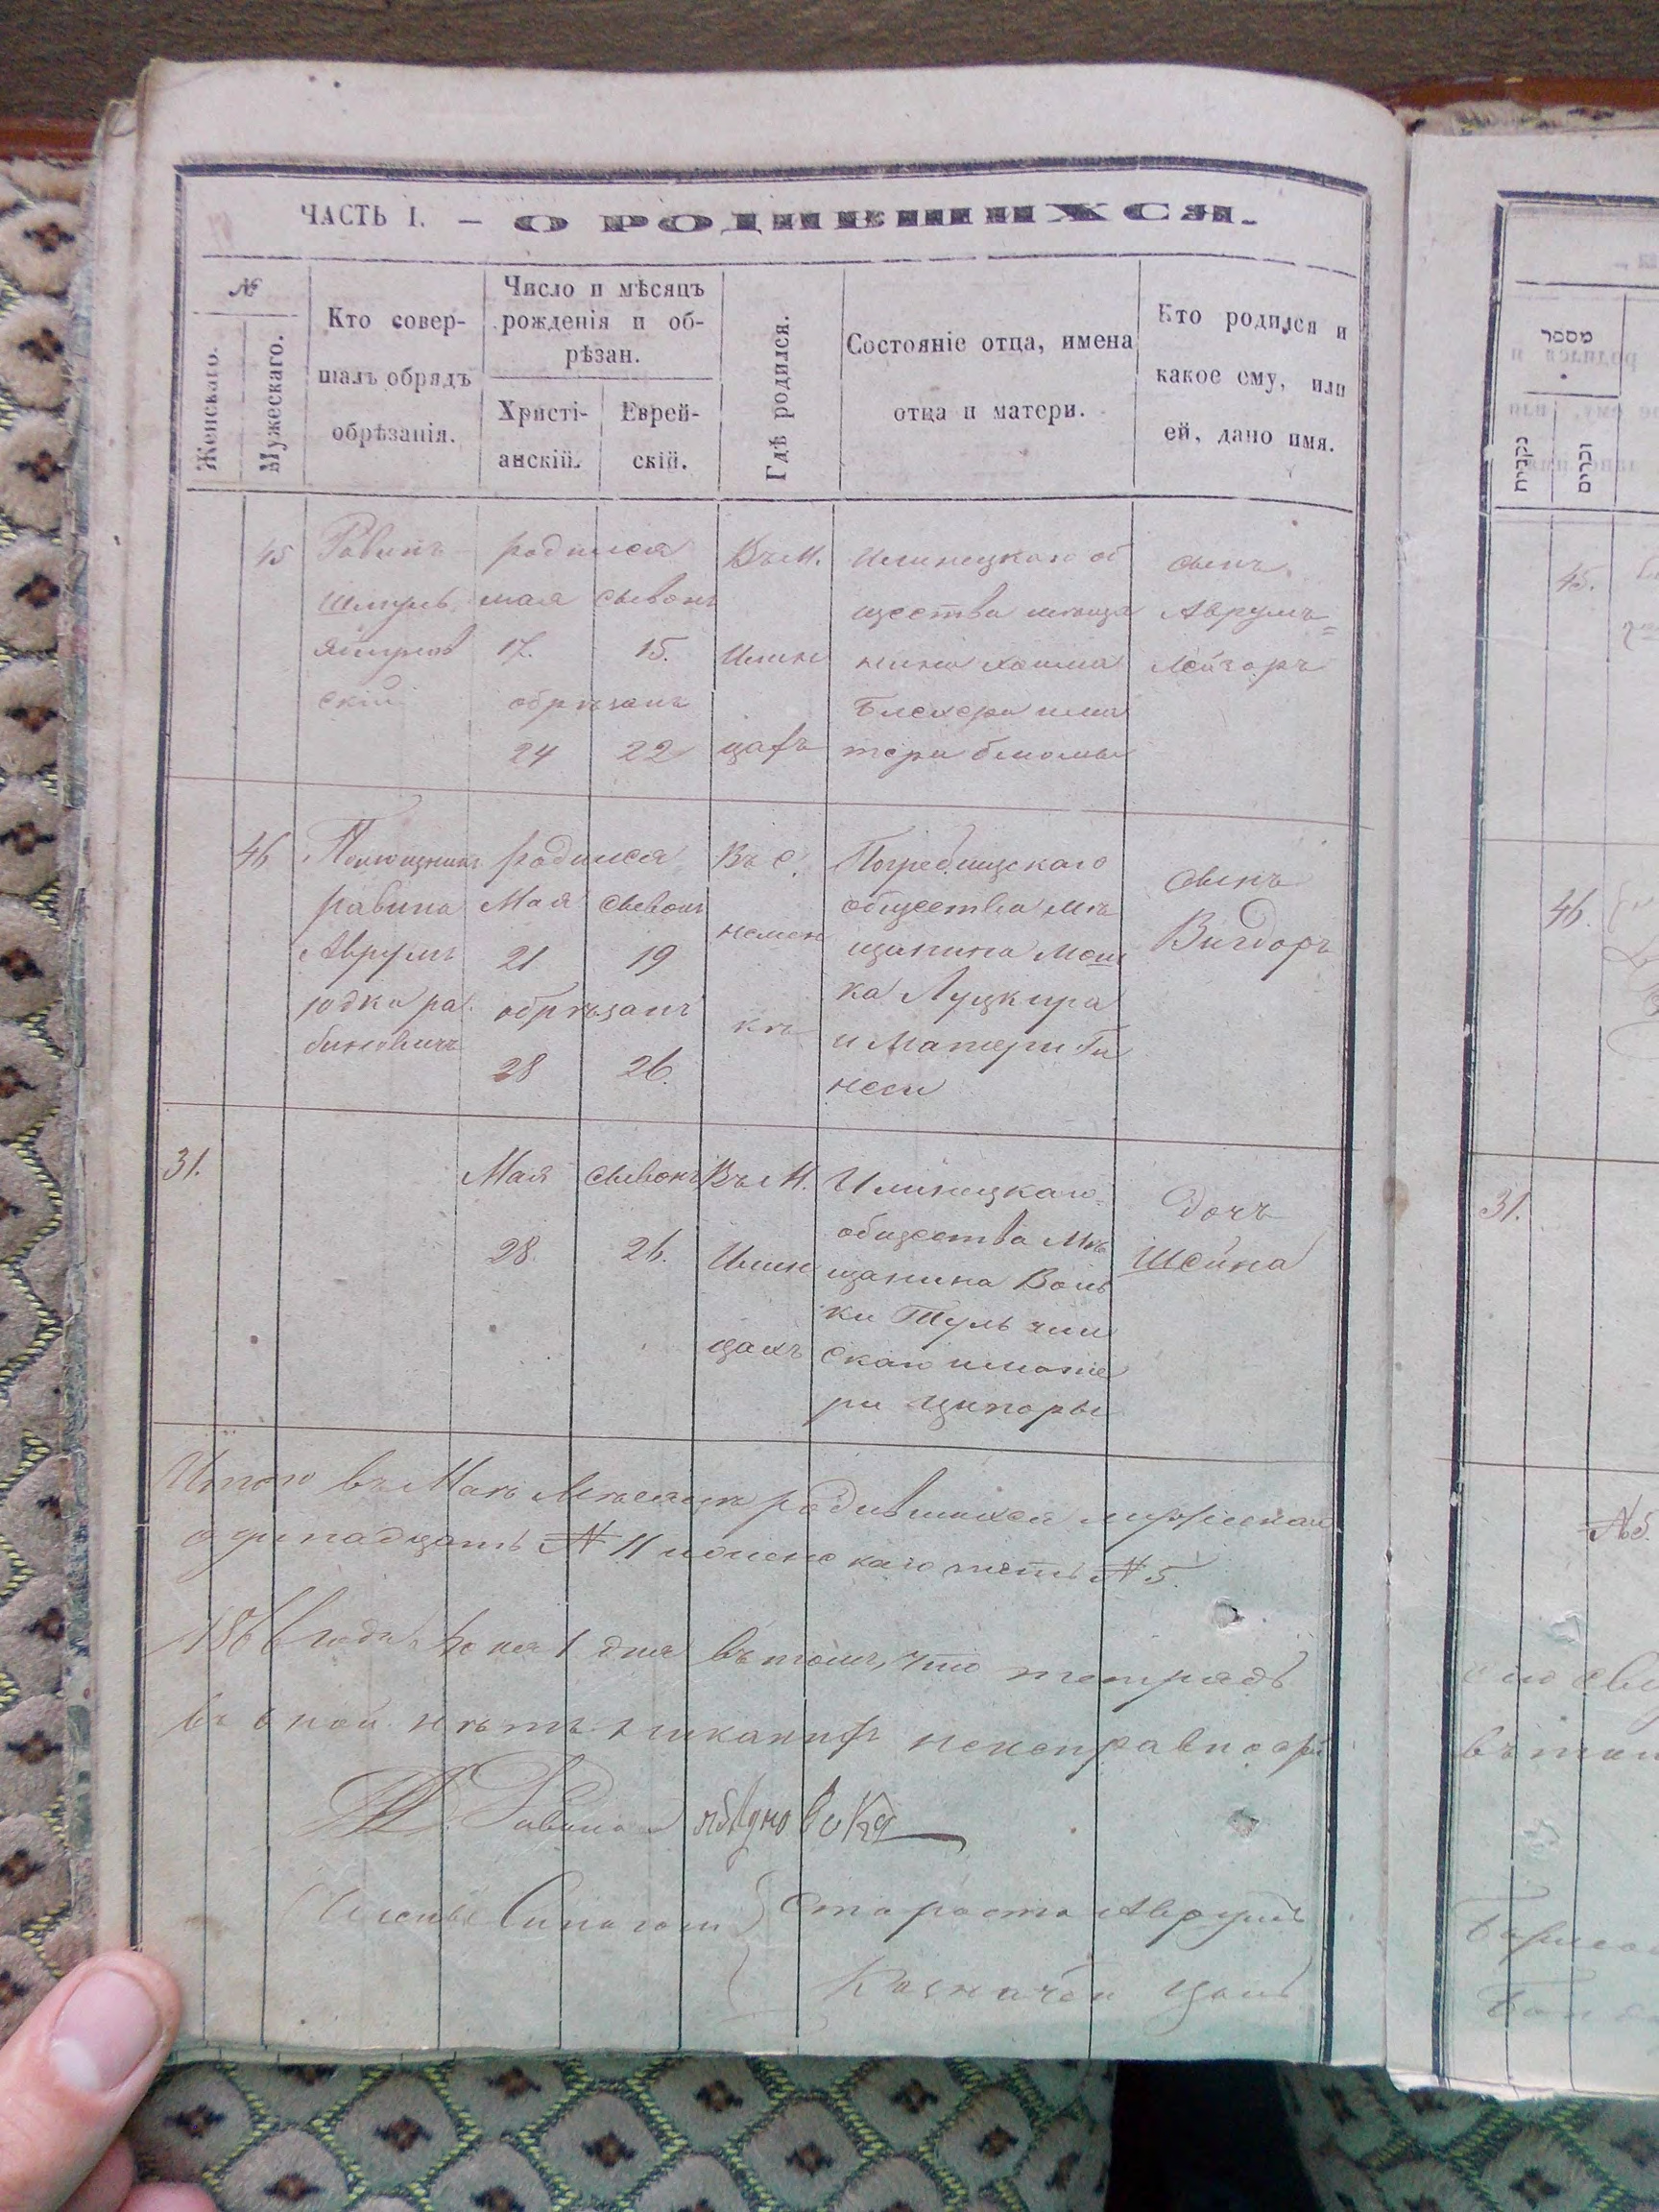 ЧАСТЬ I. — О РОДИВШИХСЯ.
№
Женскаго.
Мужескаго.
Кто совер-
шалъ обрядъ
обрѣзанія.
Число и мѣсяцъ
рожденія и об-
рѣзан.
Христі-
анскій.
Еврей-
скій.
Гдѣ родился.
Состояніе отца, имена
отца и матери.
Кто родился и
какое ему, или
ей, дано имя.
45
Равинъ
Шмуль
скій
родился
мая сывонъ
17. 15.
обрѣзанъ
24 22
Въ М.
Илин
цахъ
Илинецкаго об
щества мѣща
нина Хаима
Блехера има
тери блюмы
сынъ
Аврумъ=
Лейзоръ
46
Помощникъ
равина
Аврумъ
Юдко ра
биновичъ
родился
Мая сывонъ
21 19
обрѣзанъ
28 26.
Въ с.
немен
кѣ
Погребищскаго
общества мѣ
щанина Мош
ка Луцкира
и Матери Ги
неси
сынъ
Вигдоръ
31.
Мая сывонъ
28 26.
Въ М.
Илин
цахъ
Илинецкаго
общества Мѣ
щанина Воль
ки Тульчин
скаго иматe
ри Ципоры
дочъ
Шейна
Итого въ Маѣ Мѣсяцѣ родившихся мужескаго
одинадцать № 11 и женскаго пять № 5.
1866 года Юня 1 дня въ томъ, что тетрадь
въ оной нѣтъ никакихъ неисправносте
Равина
Члены Синагоги } Староста Аврумъ
Казначей
מספר
נקבות
זכרים
45.
46.
31.
№5.